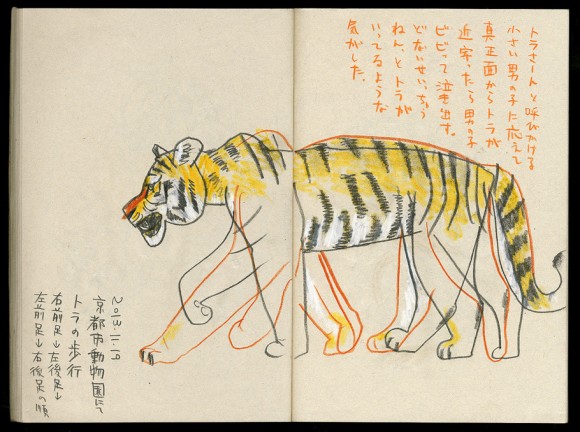 トラさーん と 呼びかける
小さい男の子に応えて
真正面からトラが
近寄ったら男の子
ビビって泣き出す。
どないせいっちゅう
ねん、とトラが
いってるような
気がした。
2013.11.19
京都市動物園にて
トラの歩行
右前足↓左後足↓
左前足↓右後足の順